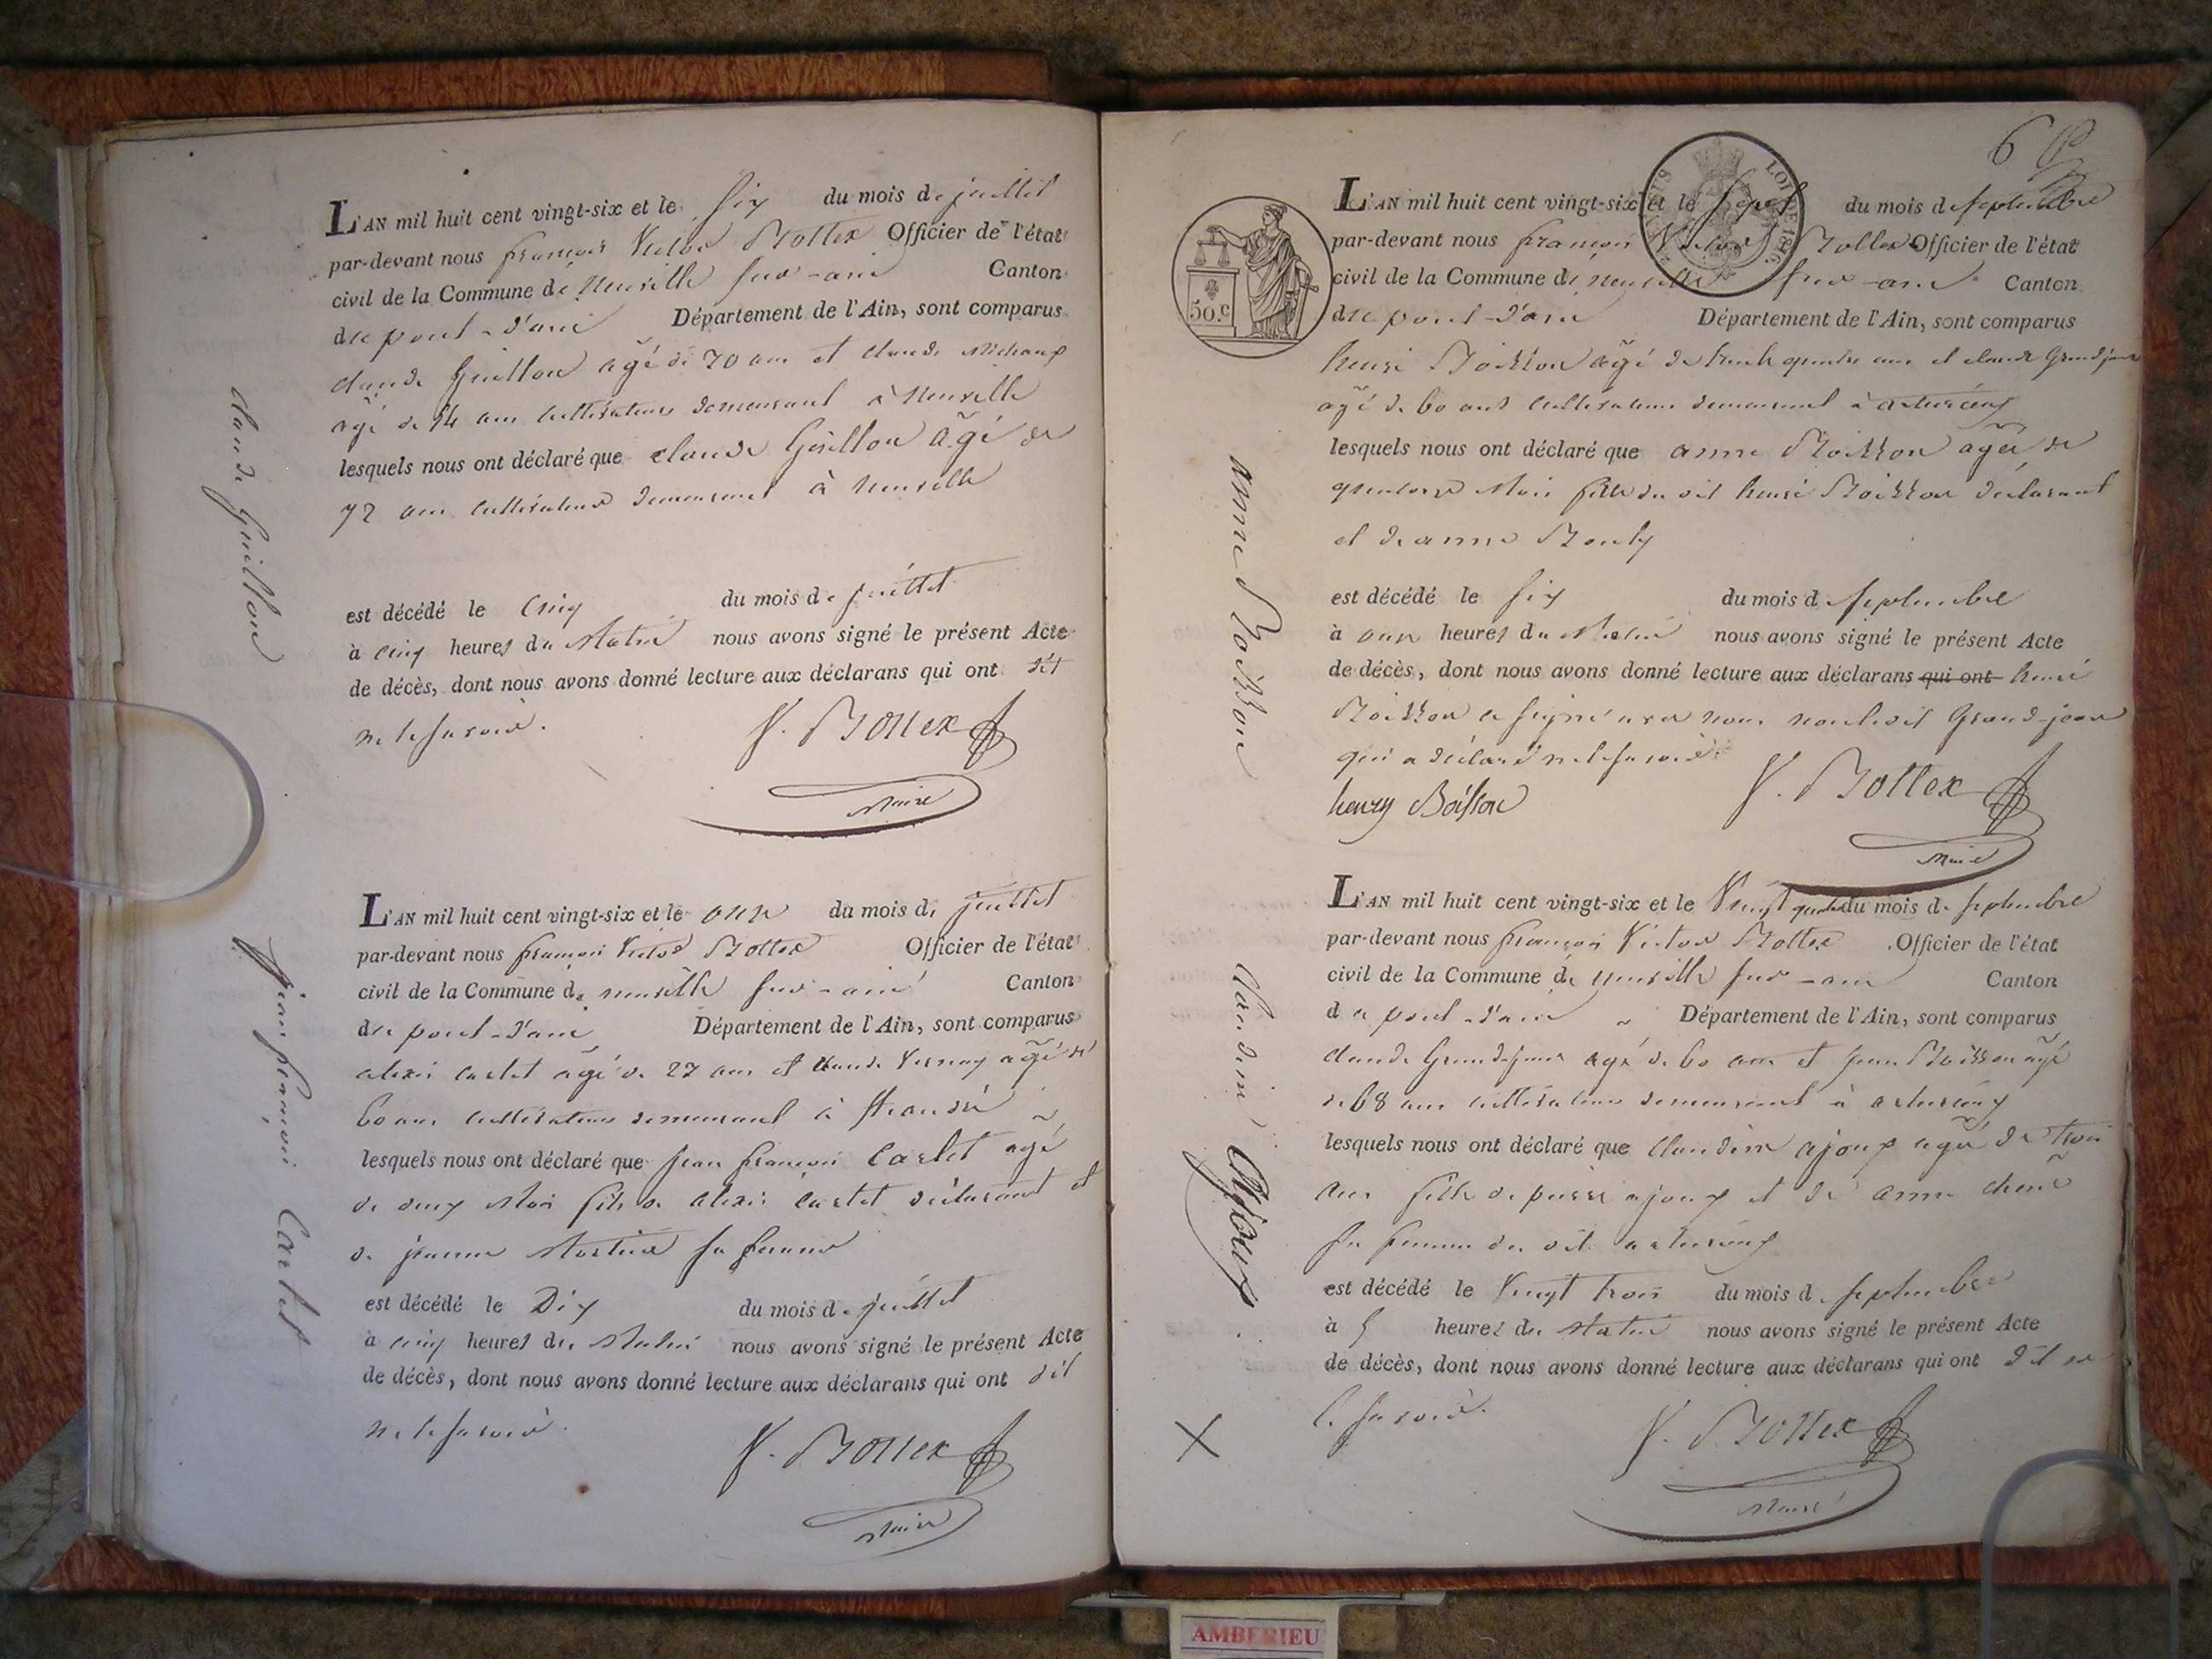 L'AN mil huit cent vingt-six et le six du mois de juillet
par-devant nous françois Victor Bottex Officier de l'état
civil de la Commune de Neuville sur-ain Canton
du pont-d'ain Département de l'Ain, sont comparus
claude Guillon agé de 70 ans et claude Michaux
agé de 54 ans cultivateurs demeurant à Neuville
lesquels nous ont déclaré que claude Guillon agé de
72 ans cultivateur demeurant à neuville
est décédé le cinq du mois de juillet
à cinq heures du Matin nous avons signé le présent Acte
de décès, dont nous avons donné lecture aux déclarans qui ont dit
ne le savoir.
V. Bottex
Maire
claude Guillon
L'AN mil huit cent vingt-six et le onze du mois de juillet
par-devant nous françois Victor Bottex Officier de l'état
civil de la Commune de neuville sur-ain Canton
du pont-d'ain Département de l'Ain, sont comparus
alexis carlet agé de 27 ans et claude Vernay agé de
60 ans cultivateurs demeurant à
lesquels nous ont déclaré que jean françois Carlet agé
de deux Mois fils de alexis carlet déclarant et
de jeanne sa femme
est décédé le Dix du mois de juillet
à cinq heures du Matin nous avons signé le présent Acte
de décès, dont nous avons donné lecture aux déclarans qui ont dit
ne le savoir.
V. Bottex
Maire
jean françois Carlet
6
50.c
L'AN mil huit cent vingt-six et le sept du mois de septembre
par-devant nous françois Victor Bottex Officier de l'état
civil de la Commune de neuville sur-ain Canton
du pont-d'ain Département de l'Ain, sont comparus
henri Boisson agé de trente quatre ans et claude Grandjean
agé de 60 ans cultivateurs demeurant à
lesquels nous ont déclaré que anne Boisson agée de
quatorze Mois fille du dit henri Boisson déclarant
et de anne
est décédé le six du mois de septembre
à onze heures du Matin nous avons signé le présent Acte
de décès, dont nous avons donné lecture aux déclarans qui ont henri
Boisson a signé avec nous non le dit Grand-jean
qui a déclaré ne le savoir.
henry Boisson
V. Bottex
Maire
anne Boisson
L'AN mil huit cent vingt-six et le Vingt quatre du mois de septembre
par-devant nous françois Victor Bottex Officier de l'état
civil de la Commune de neuville sur-ain Canton
du pont-d'ain Département de l'Ain, sont comparus
claude Grandjean agé de 60 ans et jean Boisson agé
de 68 ans cultivateurs demeurant à
lesquels nous ont déclaré que claudine ajoux agée de trois
ans fille de pierre ajoux et de anne
sa femme du dit
est décédé le Vingt trois du mois de septembre
à 5 heures du Matin nous avons signé le présent Acte
de décès, dont nous avons donné lecture aux déclarans qui ont dit ne
le savoir.
V. Bottex
Maire
Claudine Ajoux
X
AMBERIEU